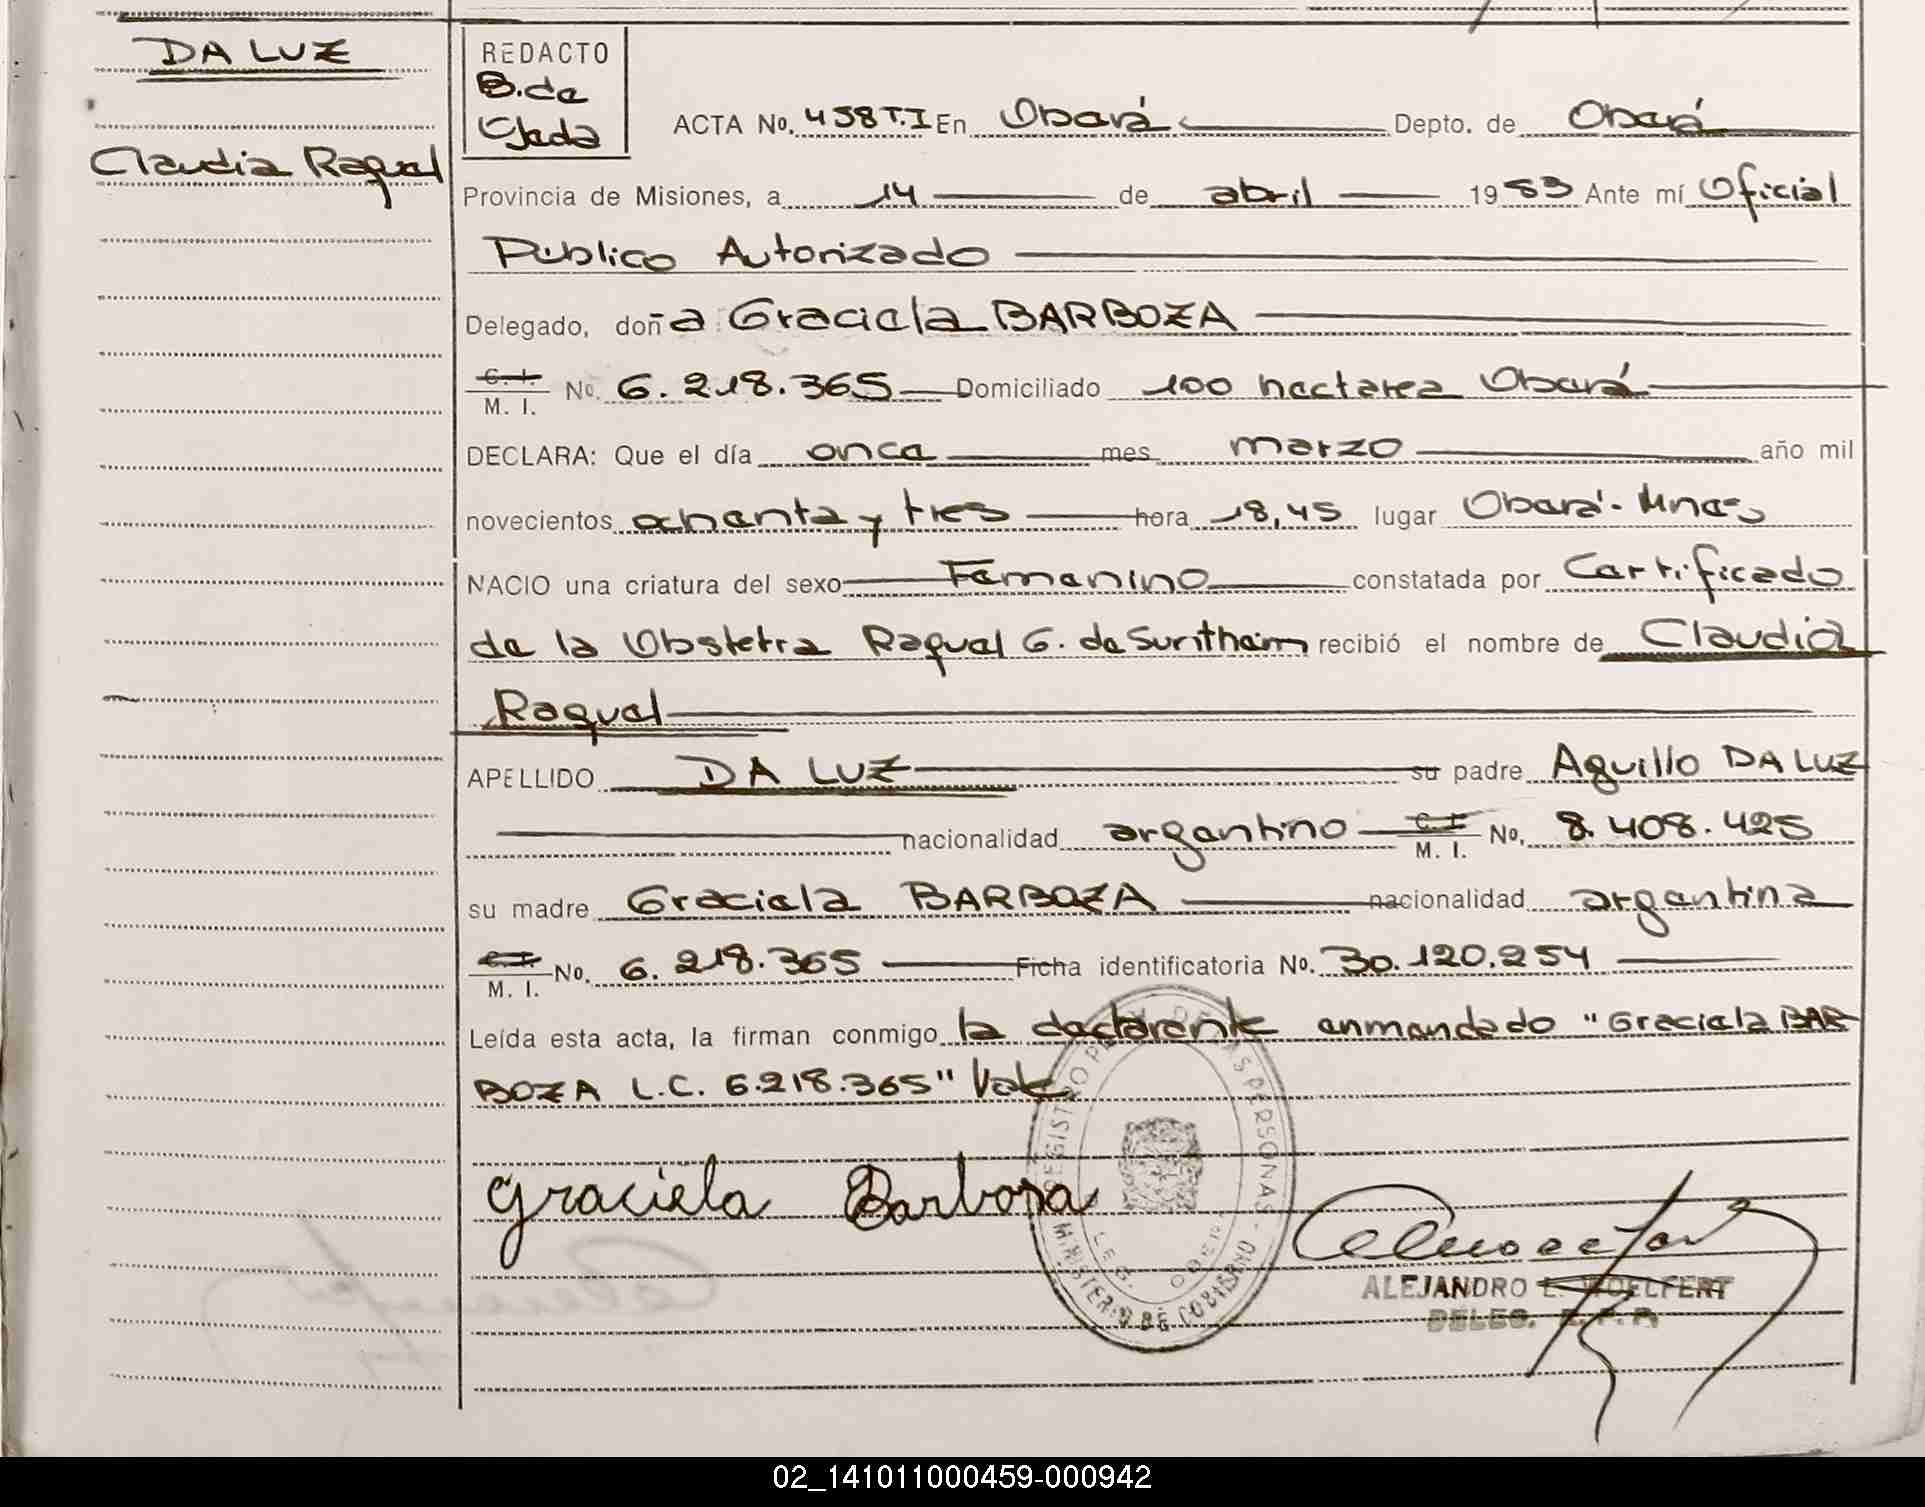 DA LUZ
Claudia Raquel
REDACTO
B. de
Ojeda
ACTA No. 458 T.I En Oberá Depto. de Oberá
Provincia de Misiones, a 14 de abril 1983 Ante mí Oficial
Público Autorizado
Delegado, doña Graciela BARBOZA
C. I. M. I. No. 6.218.365 Domiciliado 100 hectarea Oberá
DECLARA: Que el día once mes marzo año mil
novecientos ochenta y tres hora 18,45 lugar Oberá - Mnes
NACIO una criatura del sexo Femenino constatada por Certificado
de la Obstetra Raquel G. de recibió el nombre de Claudia
Raquel
APELLIDO DA LUZ su padre Aquillo DA LUZ
nacionalidad argentino C. I. M. I. No. 8.408.425
su madre Graciela BARBOZA nacionalidad argentina
C. I. M. I. No. 6.218.365 Ficha identificatoria No. 30.120.254
Leída esta acta, la firman conmigo la declarente enmendado "Graciela BAR
BOZA L.C. 6.218.365" Vale
Graciela Barboza
REGISTRO DE LAS PERSONAS - MINISTERIO DE GOBIERNO
ALEJANDRO E. WOELFERT
DELEG. R. P. P.
02_141011000459-000942